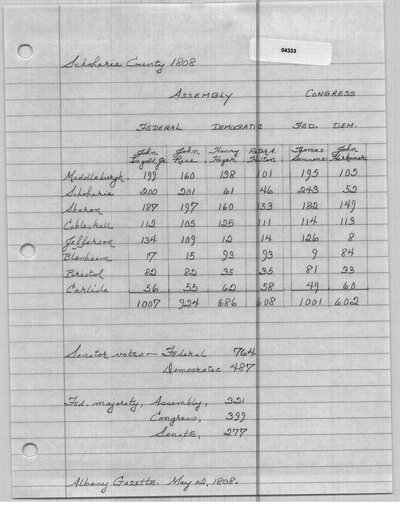 04333
Schoharie County 1808
ASSEMBLY CONGRESS
FEDERAL DEMOCRATIC FED. DEM.
John Ingold, Jr. John Rice Henry Hager Peter A. Hilton Thomas Sammons John Herkimer
Middleburgh 199 160 138 101 195 103
Schoharie 200 201 61 46 243 52
Sharon 187 197 160 153 182 149
Cobleskill 112 105 125 111 114 113
Jefferson 134 109 12 14 126 8
Blenheim 17 15 93 93 9 84
Bristol 82 82 35 35 81 33
Carlisle 56 55 62 58 49 60
1007 924 686 608 1001 602
Senator votes — Federal 764
Democratic 487
Fed. majority, Assembly, 321
Congress, 399
Senate, 277
Albany Gazette. May 12, 1808.